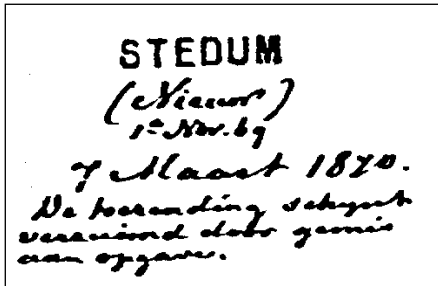 STEDUM
(Nieuw)
1e Nov. 69
7 Maart 1870.
De toezending schynt
verzuimd door gemis
aan opgave.